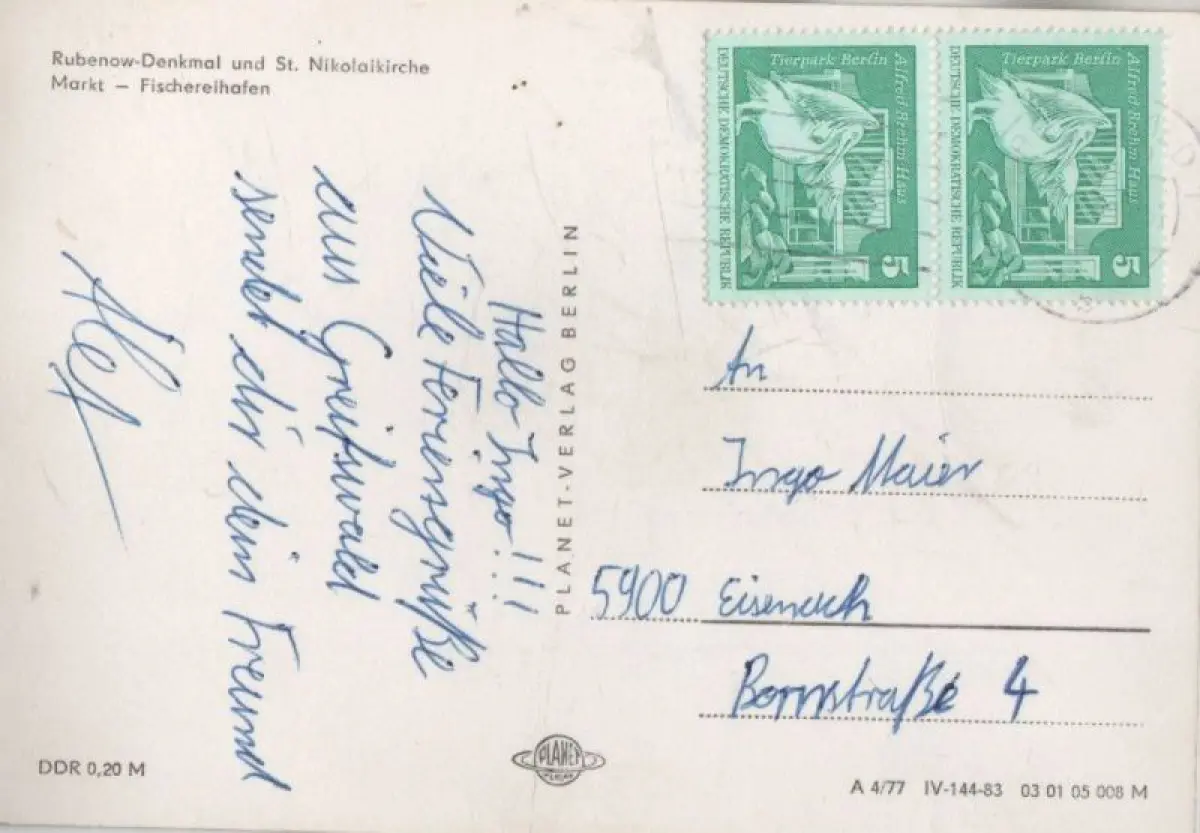 Rubenow-Denkmal und St. Nikolaikirche
Markt – Fischereihafen
Hallo Ingo!!!
Viele Feriensgrüße
aus Greifswald
sendet dir dein Freund
PLANET-VERLAG BERLIN
Tierpark Berlin
Alfred Brehm Haus
DEUTSCHE DEMOKRATISCHE REPUBLIK
5
Tierpark Berlin
Alfred Brehm Haus
DEUTSCHE DEMOKRATISCHE REPUBLIK
5
An
Ingo Maier
5900 Eisenach
Bornstraße 4
DDR 0,20 M
PLANET
A 4/77 IV-144-83 03 01 05 008 M